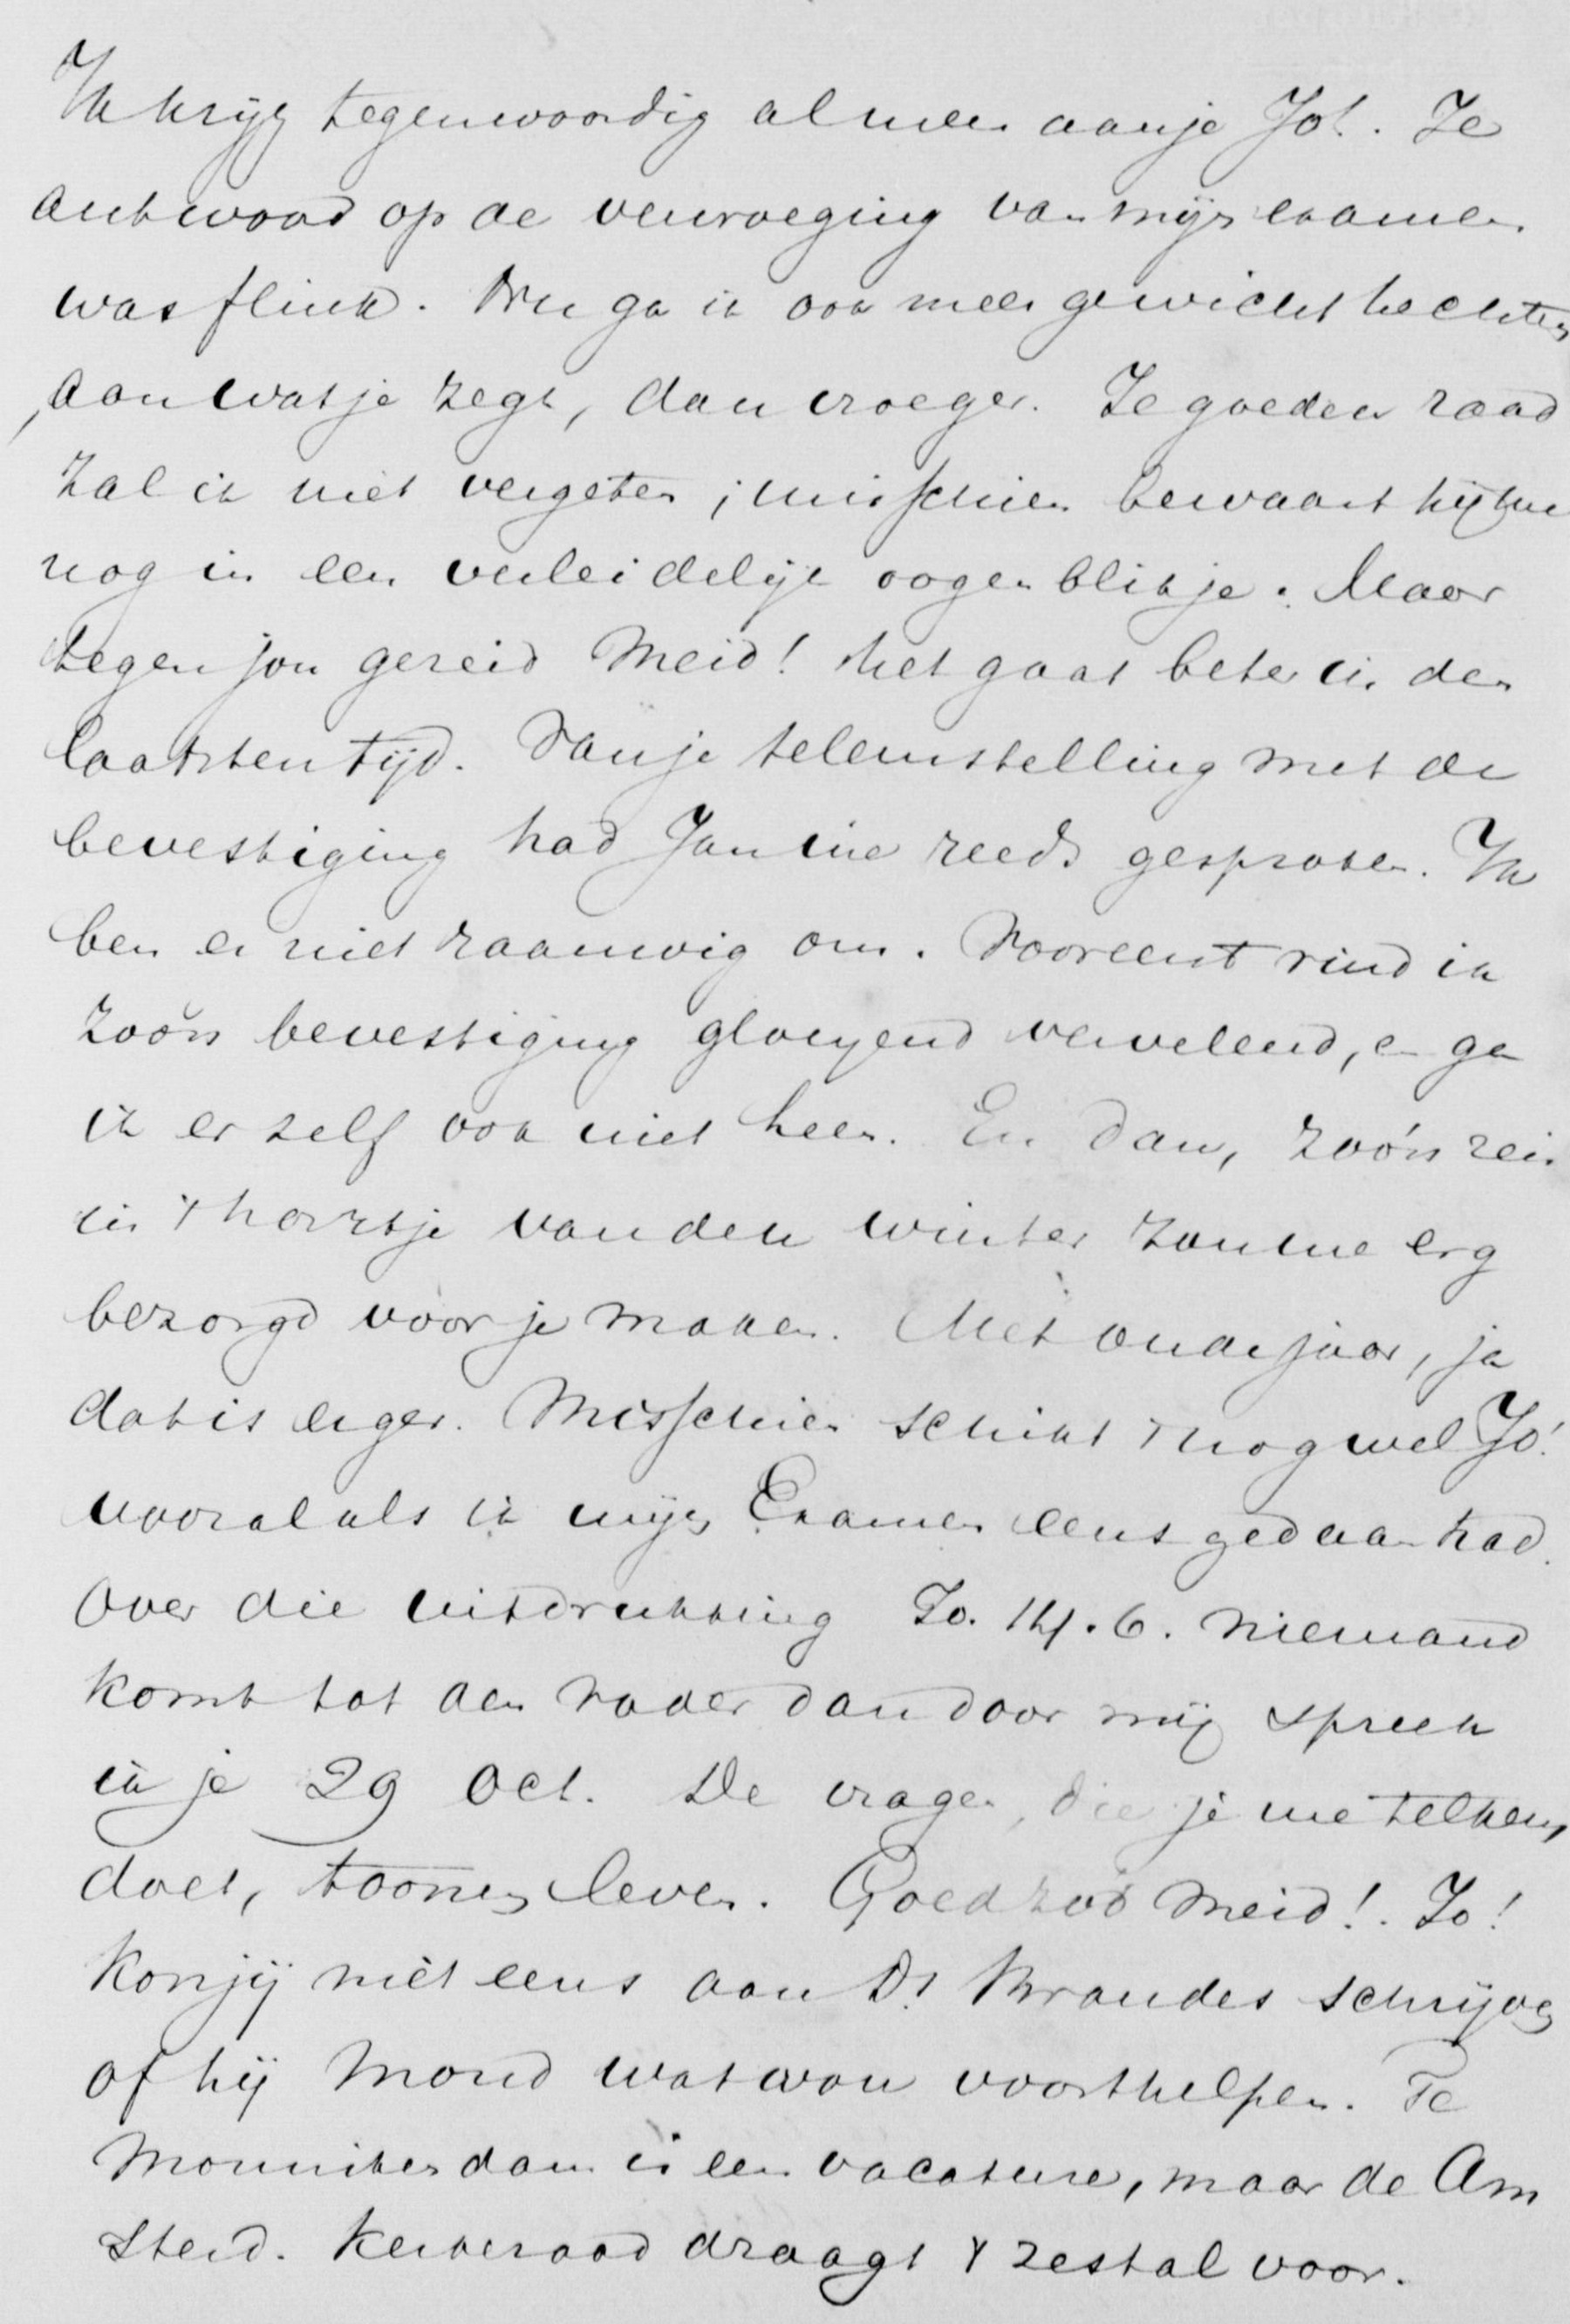 Ik krijg tegenwoordig al meer aan je Jo!. Je
antwoord op de vervroeging van mijn examen
was flink. Nu ga ik ook meer gewicht hechten
aan wat je zegt, dan vroeger. Je goeden raad
zal ik niet vergeten; misschien bewaart hij me
nog in een verleidelijk oogenblikje. Maar
tegen jou gezeid meid! het gaat beter in den
laatsten tijd. Van je teleurstelling met de
bevestiging had Jan me reeds gesproken. Ik
ben er niet rouwig om. Vooreerst vind ik
zoo'n bevestiging gloeyend vervelend, en ga
ik er zelf ook niet heen. En dan, zoo'n reis
in 't hartje van den winter zou me erg
bezorgd voor je maken. Met oudejaar, ja
dat is erger. Misschien schikt 't nog wel Jo!
vooral als ik mijn Examen eens gedaan had.
Over die uitdrukking Jo. 14.6. niemand
komt tot den Vader dan door mij spreek
ik je 29 Oct. De vragen, die je me telkens
doet, toonen leven. Goed zoo meid!. Jo!
Kon jij niet eens aan Ds Brandes schrijven
of hij Mond wat wou voorthelpen. Te
Monnikendam is een vacature, maar de Am
sterd. Kerkeraad draagt 't zestal voor.